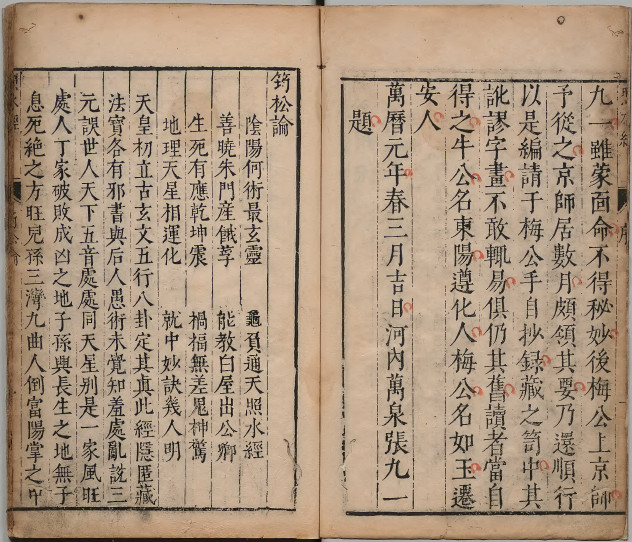 九一雖蒙面命不得秘妙後梅公上京師
予從之京師居數月頗領其要乃還順行
以是編請于梅公手自抄録藏之笥中其
訛謬字畫不敢輒易俱仍其舊讀者當自
得之牛公名東陽遵化人梅公名如玉遷
安人
萬曆元年春三月吉日河内萬泉張九一
題
筠松論
陰陽何術最玄靈 龜負通天照水經
善曉朱門産餓莩 能教白屋出公卿
生死有應乾坤震 禍福無差鬼神驚
地理天星相運化 就中妙訣幾人明
天皇初立古玄文五行八卦定其真此經隱匿藏
法寳各有邪書與后人愚術未覺知羞處亂説三
元誤世人天下五音處處同天星别是一家風旺
處人丁家破敗成凶之地子孫與長生之地無子
息死絶之方旺兒孫三灣九曲人倒富陽掌之中